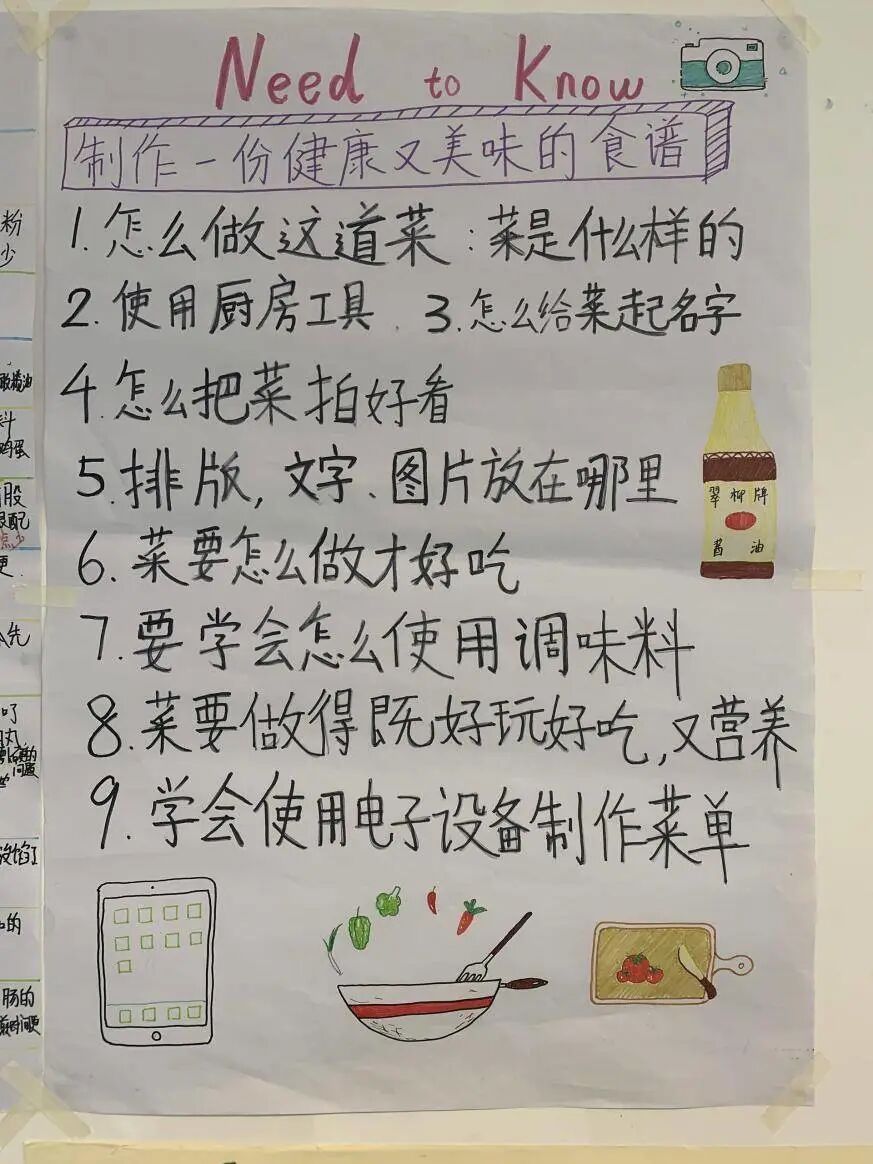 Need to Know
制作一份健康又美味的食谱
1.怎么做这道菜:菜是什么样的
2.使用厨房工具.3.怎么给菜起名字
4.怎么把菜拍好看
5.排版,文字、图片放在哪里
6.菜要怎么做才好吃
7.要学会怎么使用调味料
8.菜要做得既好玩好吃,又营养
9.学会使用电子设备制作菜单
翠柳牌
酱油
粉
少
橄榄油
料
鸡蛋
股
配
点少
更.
先
的
问题
的
肠的